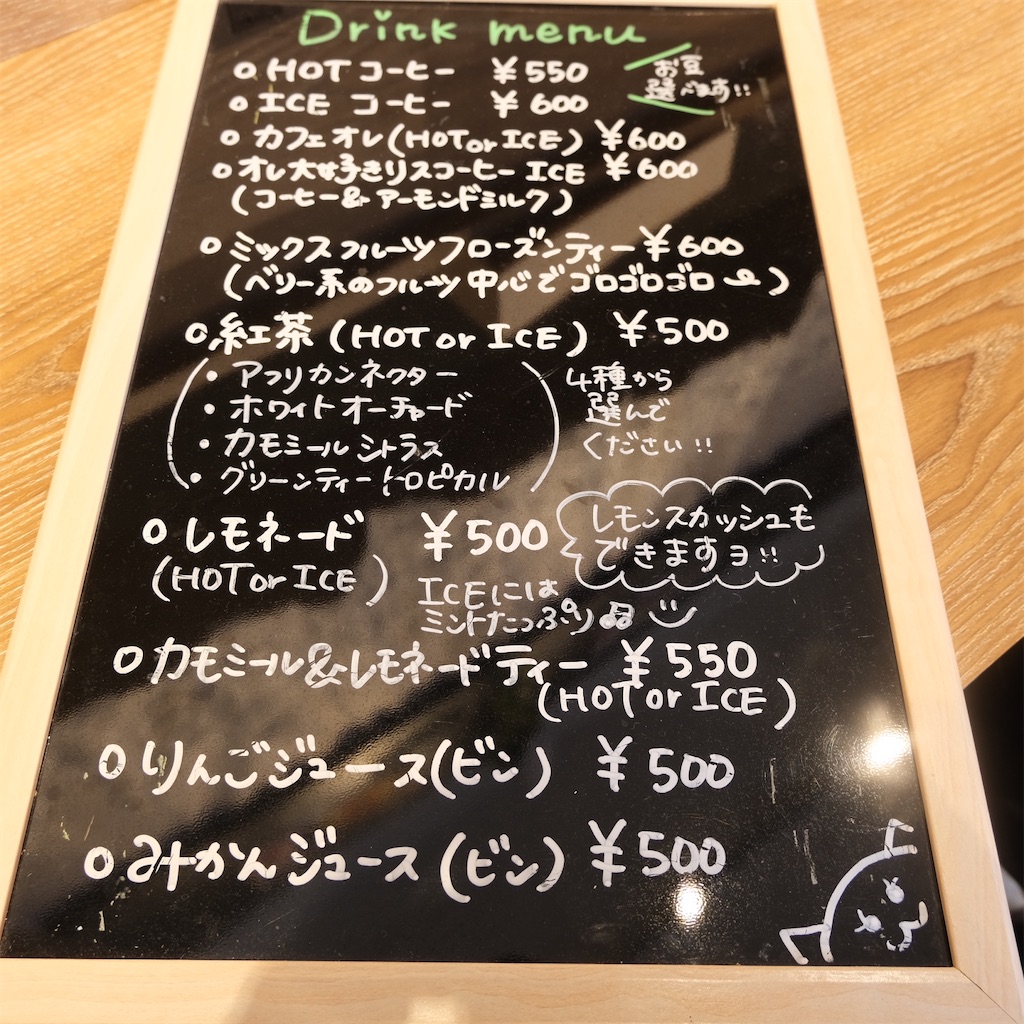 Drink menu
○ HOT コーヒー ￥550
お豆
選べます!!
○ ICE コーヒー ￥600
○ カフェオレ (HOT or ICE) ￥600
○ オレ大好きリスコーヒー ICE ￥600
(コーヒー&アーモンドミルク)
○ ミックスフルーツフローズンティー ￥600
(ベリー系のフルーツ中心でゴロゴロゴロ)
○ 紅茶 (HOT or ICE) ￥500
・アフリカンネクター
・ホワイトオーチャード
・カモミールシトラス
・グリーンティートロピカル
4種から
選んで
ください!!
○ レモネード ￥500
(HOT or ICE)
レモンスカッシュも
できますヨ!!
ICEには
ミントたっぷり♫
○ カモミール&レモネードティー ￥550
(HOT or ICE)
○ りんごジュース(ビン) ￥500
○ みかんジュース(ビン) ￥500